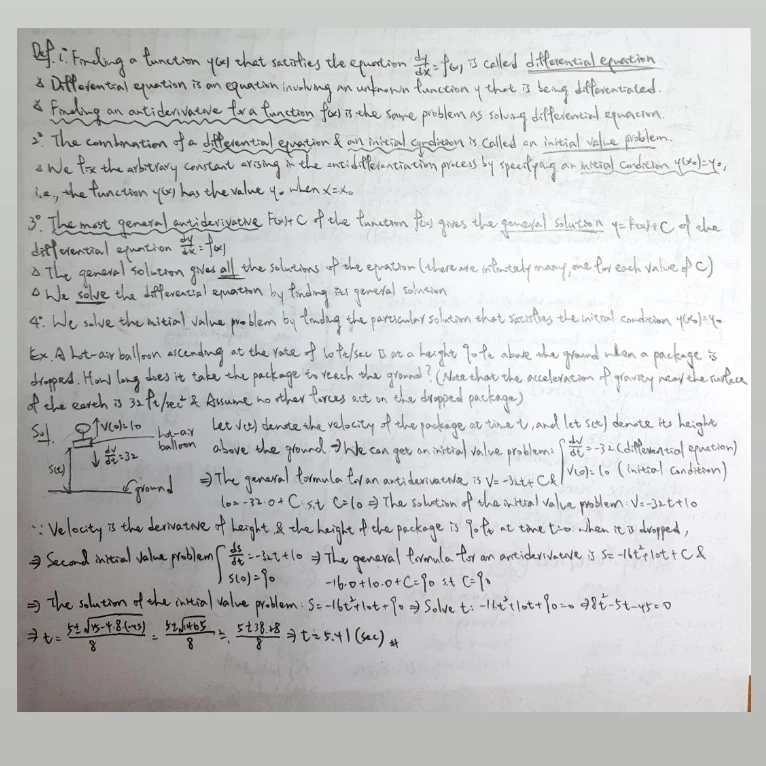 Def. 1°. Finding a function y(x) that satisfies the equation dy/dx = f(x) is called differential equation
△ Differential equation is an equation involving an unknown function y that is being differentiated.
△ Finding an antiderivative for a function f(x) is the same problem as solving differential equation.
2°. The combination of a differential equation & an initial condition is called an initial value problem.
△ We fix the arbitrary constant arising in the antidifferentiation process by specifying an initial condition y(x₀)=y₀,
i.e., the function y(x) has the value y₀ when x=x₀
3°. The most general antiderivative F(x)+C of the function f(x) gives the general solution y=F(x)+C of the
differential equation dy/dx = f(x)
△ The general solution gives all the solutions of the equation (there are infinitely many, one for each value of C)
△ We solve the differential equation by finding its general solution
4°. We solve the initial value problem by finding the particular solution that satisfies the initial condition y(x₀)=y₀
Ex. A hot-air balloon ascending at the rate of 10 ft/sec is at a height 90 ft above the ground when a package is
dropped. How long does it take the package to reach the ground? (Note that the acceleration of gravity near the surface
of the earth is 32 ft/sec² & Assume no other forces act on the dropped package)
Sol. ↑V(0)=10 hot-air balloon ↓ dv/dt=32 S(t) ground
Let V(t) denote the velocity of the package at time t, and let S(t) denote its height
above the ground → We can get an initial value problem: { dv/dt = -32 (differential equation)
V(0)=10 (initial condition)
⇒ The general formula for an antiderivative is V=-32t+C &
10=-32·0+C s.t C=10 ⇒ The solution of the initial value problem: V=-32t+10
∵ Velocity is the derivative of height & the height of the package is 90 ft at time t=0 when it is dropped,
⇒ Second initial value problem { ds/dt = -32t+10 ⇒ The general formula for an antiderivative is S=-16t²+10t+C &
S(0)=90 -16·0+10·0+C=90 s.t C=90
⇒ The solution of the initial value problem: S=-16t²+10t+90 ⇒ Solve t: -16t²+10t+90=0 ⇒ 8t²-5t-45=0
⇒ t = 5±√25-4·8·(-45) / 8 = 5±√1465 / 8 ≒ 5±38.28 / 8 ⇒ t=5.41 (sec) #